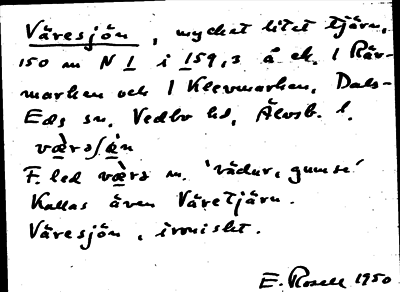 Väresjön, mycket litet tjärn,
150 m N 1 i 159,3 å ek. 1 Rär-
marken och 1 Klevmarken, Dals-
Eds sn, Vedbo hd, Älvsb. l.
F. led m. 'vädur, gumse'
Kallas även Väretjärn.
Väresjön, ironiskt.
E. Rosell 1950